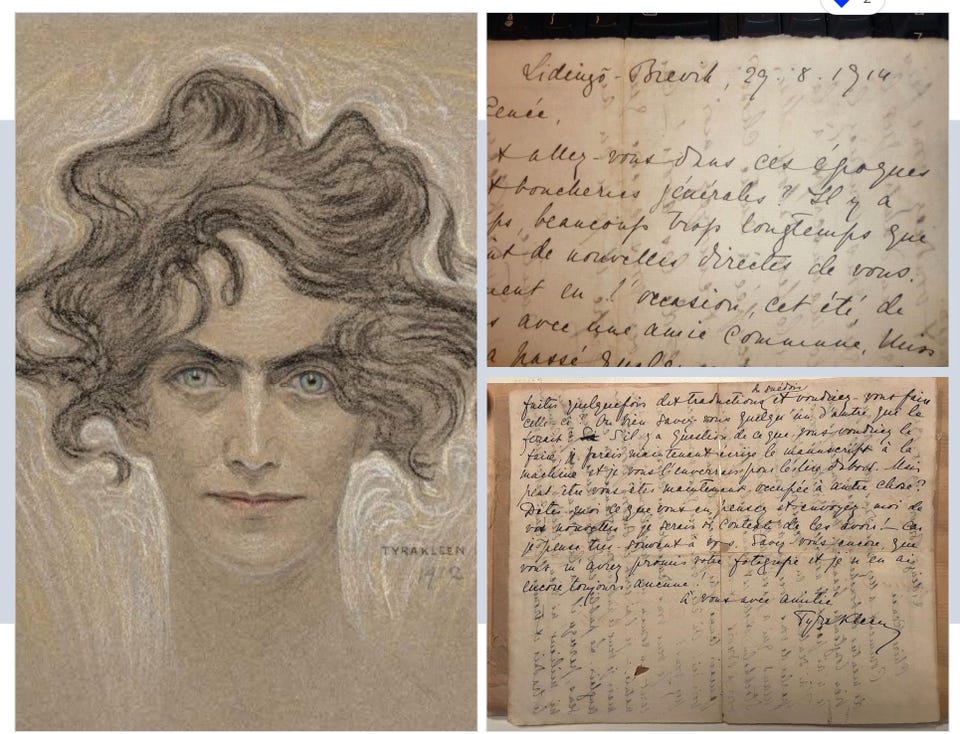 2
TYRAKLEEN
1912
Lidingö-Brevik, 29.8.1914
Renée,
allez-vous dans ces époques
boucheries générales? Il y a
beaucoup trop longtemps que
de nouvelles directes de vous.
en l'occasion, cet été de
avec une amie commune, Miss
a passé
à suédois
faites quelquefois des traductions et voudriez-vous faire
celle-ci? Ou bien savez-vous quelqu'un d'autre qui le
ferait S'il y a question de ce que vous voudriez le
faire, je ferais maintenant écrire le manuscript à la
machine et je vous l'enverrais pour d'abord. Mais
peut-être vous êtes maintenant occupée à autre chose?
Dites-moi ce que vous en pensez et envoyez-moi de
vos nouvelles je serais si contente de les avoir! car
je pense très souvent à vous. Savez-vous encore que
vous m'aviez promis votre fotografie et je n'en ai
encore toujours aucune!
à vous avec amitié
Tyra Kleen